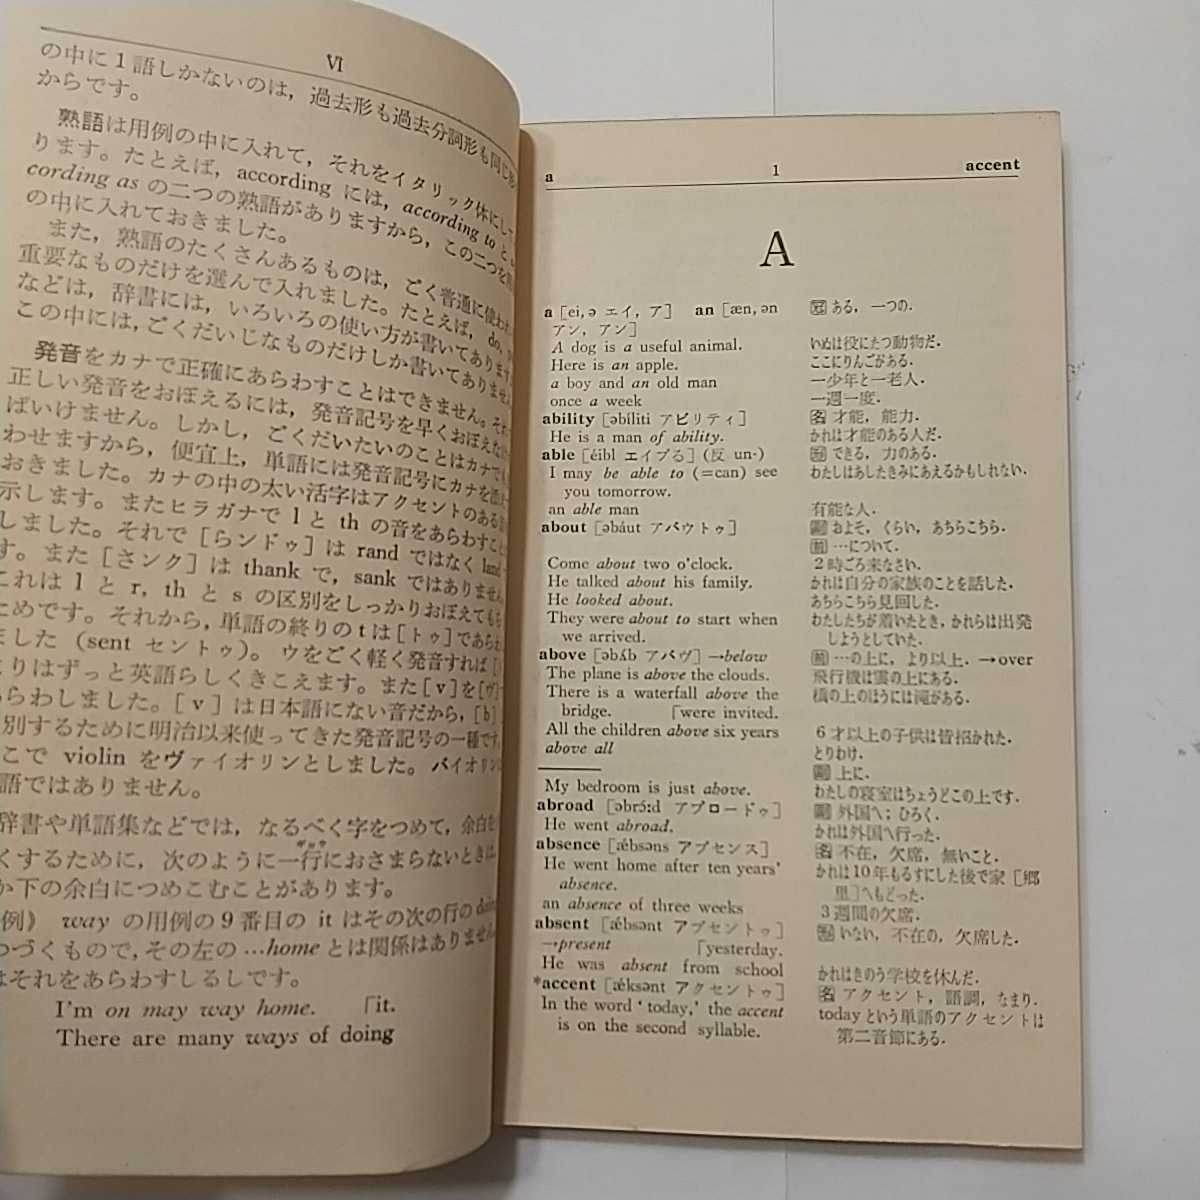 VI
の中に1語しかないのは，過去形も過去分詞形も同じ
からです。
熟語は用例の中に入れて，それをイタリック体にし
ります。たとえば，according には，according to と
cording as の二つの熟語がありますから，この二つを
の中に入れておきました。
また，熟語のたくさんあるものは，ごく普通に使われ
重要なものだけを選んで入れました。たとえば，do,
などは，辞書には，いろいろの使い方が書いてあります
この中には，ごくだいじなものだけしか書いてありません
発音をカナで正確にあらわすことはできません。それ
正しい発音をおぼえるには，発音記号を早くおぼえな
ばいけません。しかし，ごくだいたいのことはカナでも
わせますから，便宜上，単語には発音記号にカナを
おきました。カナの中の太い活字はアクセントのある
示します。またヒラガナで l と th の音をあらわすこと
しました。それで［らンドゥ］は rand ではなく land
す。また［さンク］は thank で，sank ではありません
これは l と r, th と s の区別をしっかりおぼえても
ためです。それから，単語の終りの t は［トゥ］であらわ
ました (sent セントゥ)。ウをごく軽く発音すれば
よりはずっと英語らしくきこえます。また［v］を［ヴ］
あらわしました。［v］は日本語にない音だから，［b］
別するために明治以来使ってきた発音記号の一種です。
こで violin をヴァイオリンとしました。バイオリン
語ではありません。
辞書や単語集などでは，なるべく字をつめて，余白を
くするために，次のように一行におさまらないときは
か下の余白につめこむことがあります。
例》 way の用例の9番目の it はその次の行の doing
つづくもので，その左の …home とは関係はありません
はそれをあらわすしるしです。
I'm on may way home. 「it.
There are many ways of doing
a 1 accent
A
a [ei, ə エイ, ア] an [æn, ən 冠 ある，一つの.
アン, アン]
A dog is a useful animal. いぬは役にたつ動物だ.
Here is an apple. ここにりんごがある.
a boy and an old man 一少年と一老人.
once a week 一週一度.
ability [əbíliti アビリティ] 名 才能，能力.
He is a man of ability. かれは才能のある人だ.
able [éibl エイブる] (反 un-) 形 できる，力のある.
I may be able to (=can) see わたしはあしたきみにあえるかもしれない.
you tomorrow.
an able man 有能な人.
about [əbáut アバウトゥ] 副 およそ，くらい，あちらこちら.
前 …について.
Come about two o'clock. 2時ごろ来なさい.
He talked about his family. かれは自分の家族のことを話した.
He looked about. あちらこちら見回した.
They were about to start when わたしたちが着いたとき，かれらは出発
we arrived. しようとしていた.
above [əbʌ́b アバヴ] →below 前 …の上に，より以上. →over
The plane is above the clouds. 飛行機は雲の上にある.
There is a waterfall above the 橋の上のほうには滝がある.
bridge. 「were invited.
All the children above six years 6才以上の子供は皆招かれた.
above all とりわけ.
副 上に.
My bedroom is just above. わたしの寝室はちょうどこの上です.
abroad [əbrɔ́:d アブロードゥ] 副 外国へ; ひろく.
He went abroad. かれは外国へ行った.
absence [ǽbsəns アブセンス] 名 不在，欠席，無いこと.
He went home after ten years' かれは10年もるすにした後で家［郷
absence. 里］へもどった.
an absence of three weeks 3週間の欠席.
absent [ǽbsənt アブセントゥ] 形 いない，不在の，欠席した.
→present 「yesterday.
He was absent from school かれはきのう学校を休んだ.
*accent [ǽksənt アクセントゥ] 名 アクセント，語調，なまり.
In the word ‘today,’ the accent today という単語のアクセントは
is on the second syllable. 第二音節にある.